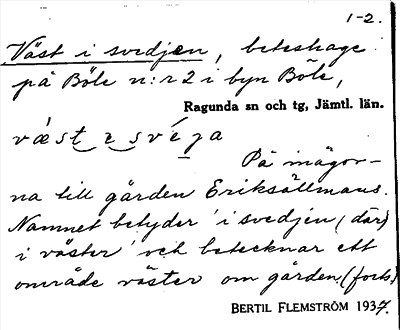 1-2.
Väst i svedjen, beteshage
på Böle n:r 2 i byn Böle,
Ragunda sn och tg, Jämtl. län.
væ̀st e svéja
På inägor-
na till gården Eriksällmans.
Namnet betyder 'i svedjen (där)
i väster' och betecknar ett
område väster om gården. (forts)
BERTIL FLEMSTRÖM 1937.